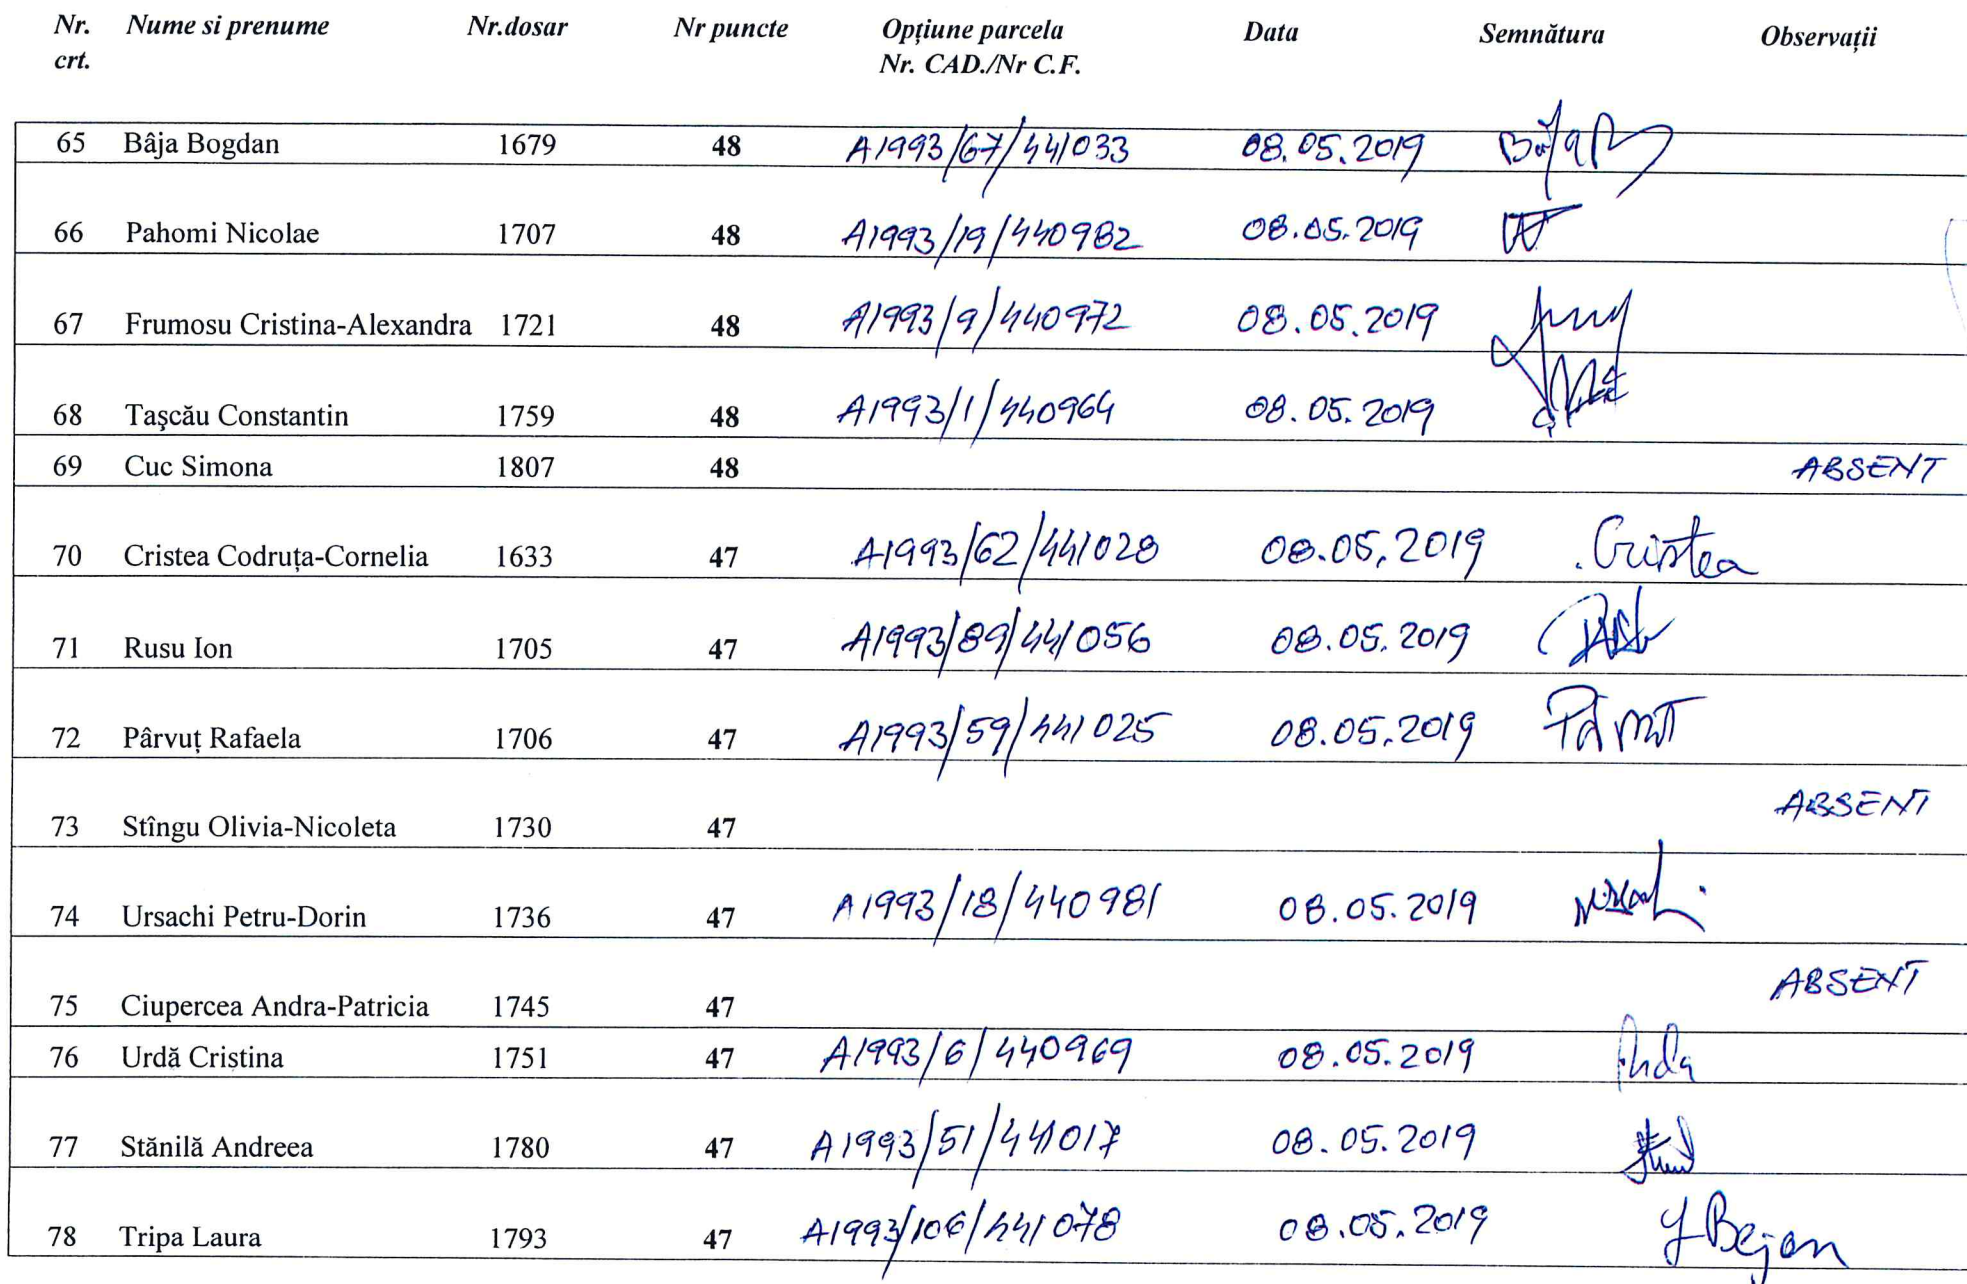 Nr. Nume si prenume Nr.dosar Nr puncte Opțiune parcela Data Semnătura Observații
crt. Nr. CAD./Nr C.F.
65 Bâja Bogdan 1679 48 A1993/67/441033 08.05.2019
66 Pahomi Nicolae 1707 48 A1993/19/440982 08.05.2019
67 Frumosu Cristina-Alexandra 1721 48 A1993/9/440972 08.05.2019
68 Taşcău Constantin 1759 48 A1993/1/440964 08.05.2019
69 Cuc Simona 1807 48 ABSENT
70 Cristea Codruța-Cornelia 1633 47 A1993/62/441028 08.05.2019 Cristea
71 Rusu Ion 1705 47 A1993/89/441056 08.05.2019
72 Pârvuț Rafaela 1706 47 A1993/59/441025 08.05.2019
73 Stîngu Olivia-Nicoleta 1730 47 ABSENT
74 Ursachi Petru-Dorin 1736 47 A1993/18/440981 08.05.2019
75 Ciupercea Andra-Patricia 1745 47 ABSENT
76 Urdă Cristina 1751 47 A1993/6/440969 08.05.2019
77 Stănilă Andreea 1780 47 A1993/51/441017 08.05.2019
78 Tripa Laura 1793 47 A1993/106/441078 08.05.2019 Bejan